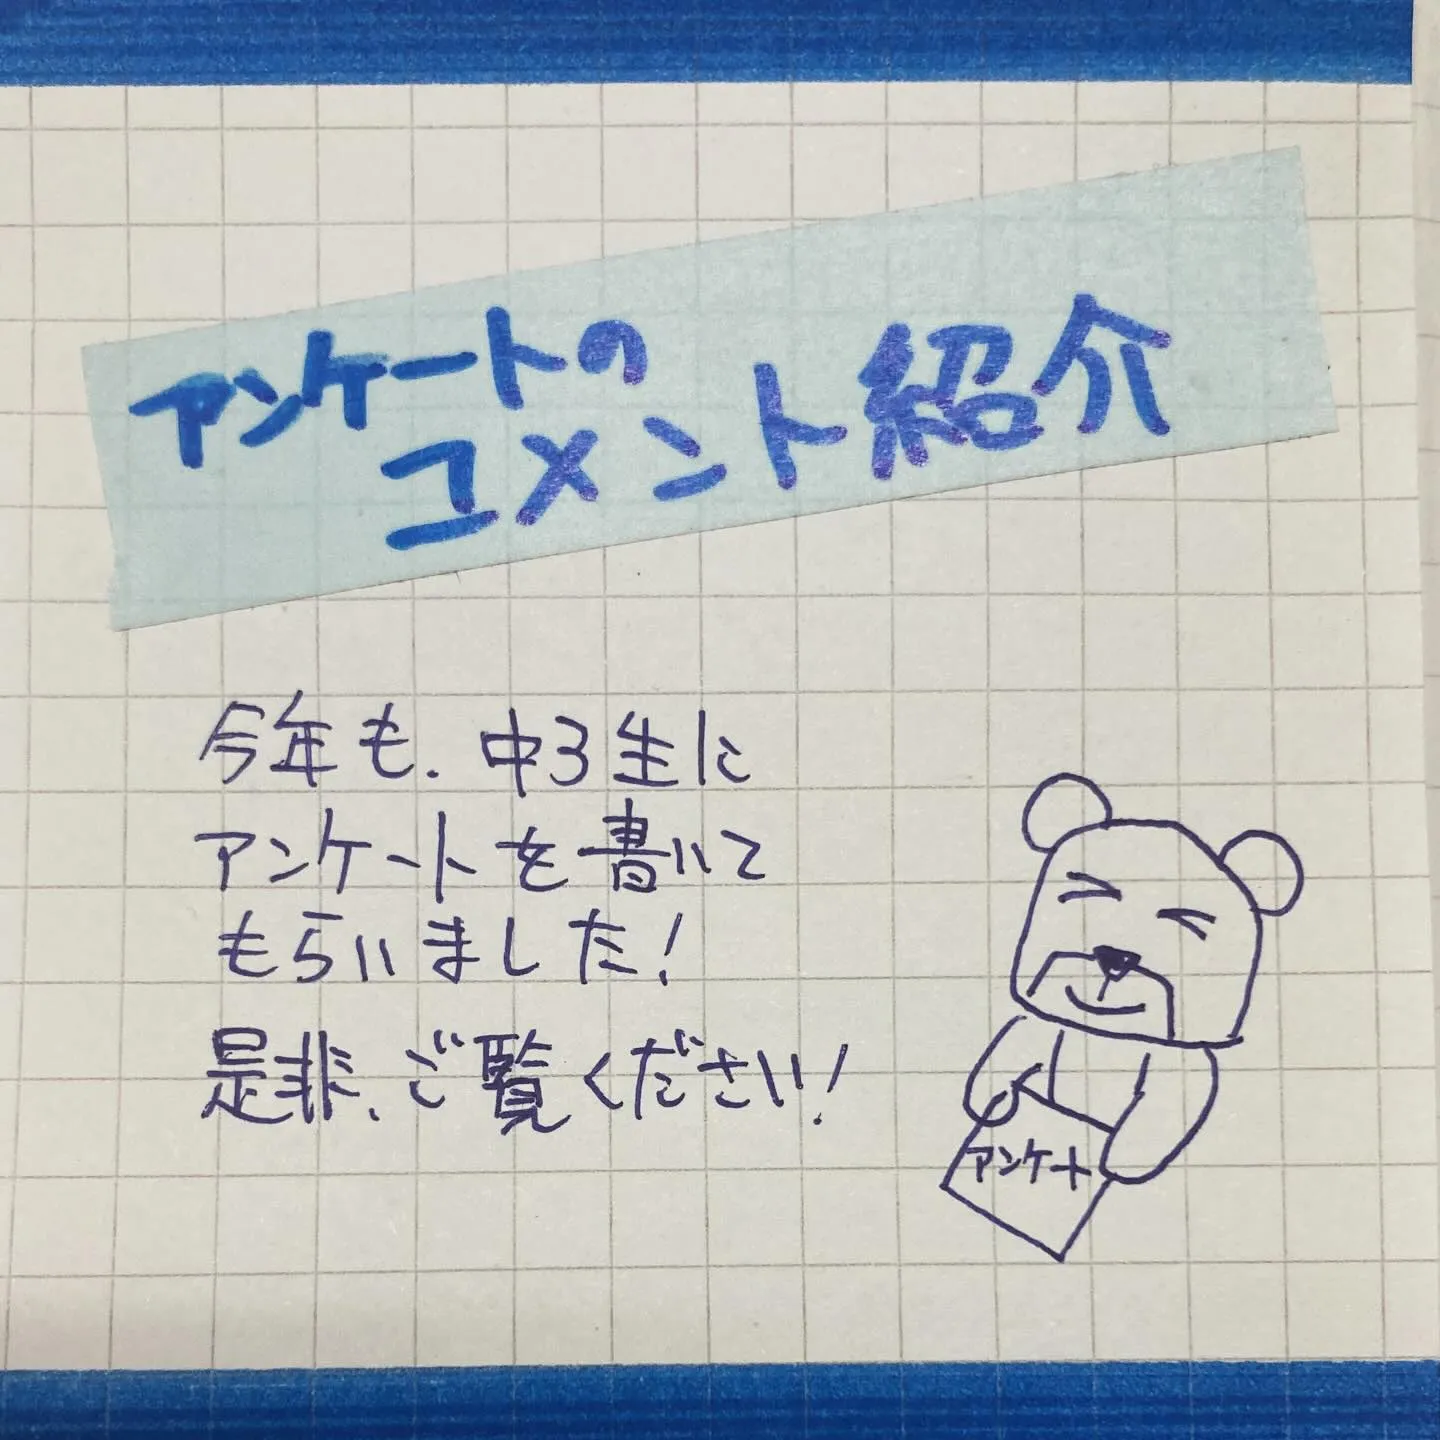 アンケートの
コメント紹介
今年も、中3生に
アンケートを書いて
もらいました!
是非、ご覧ください!
アンケート